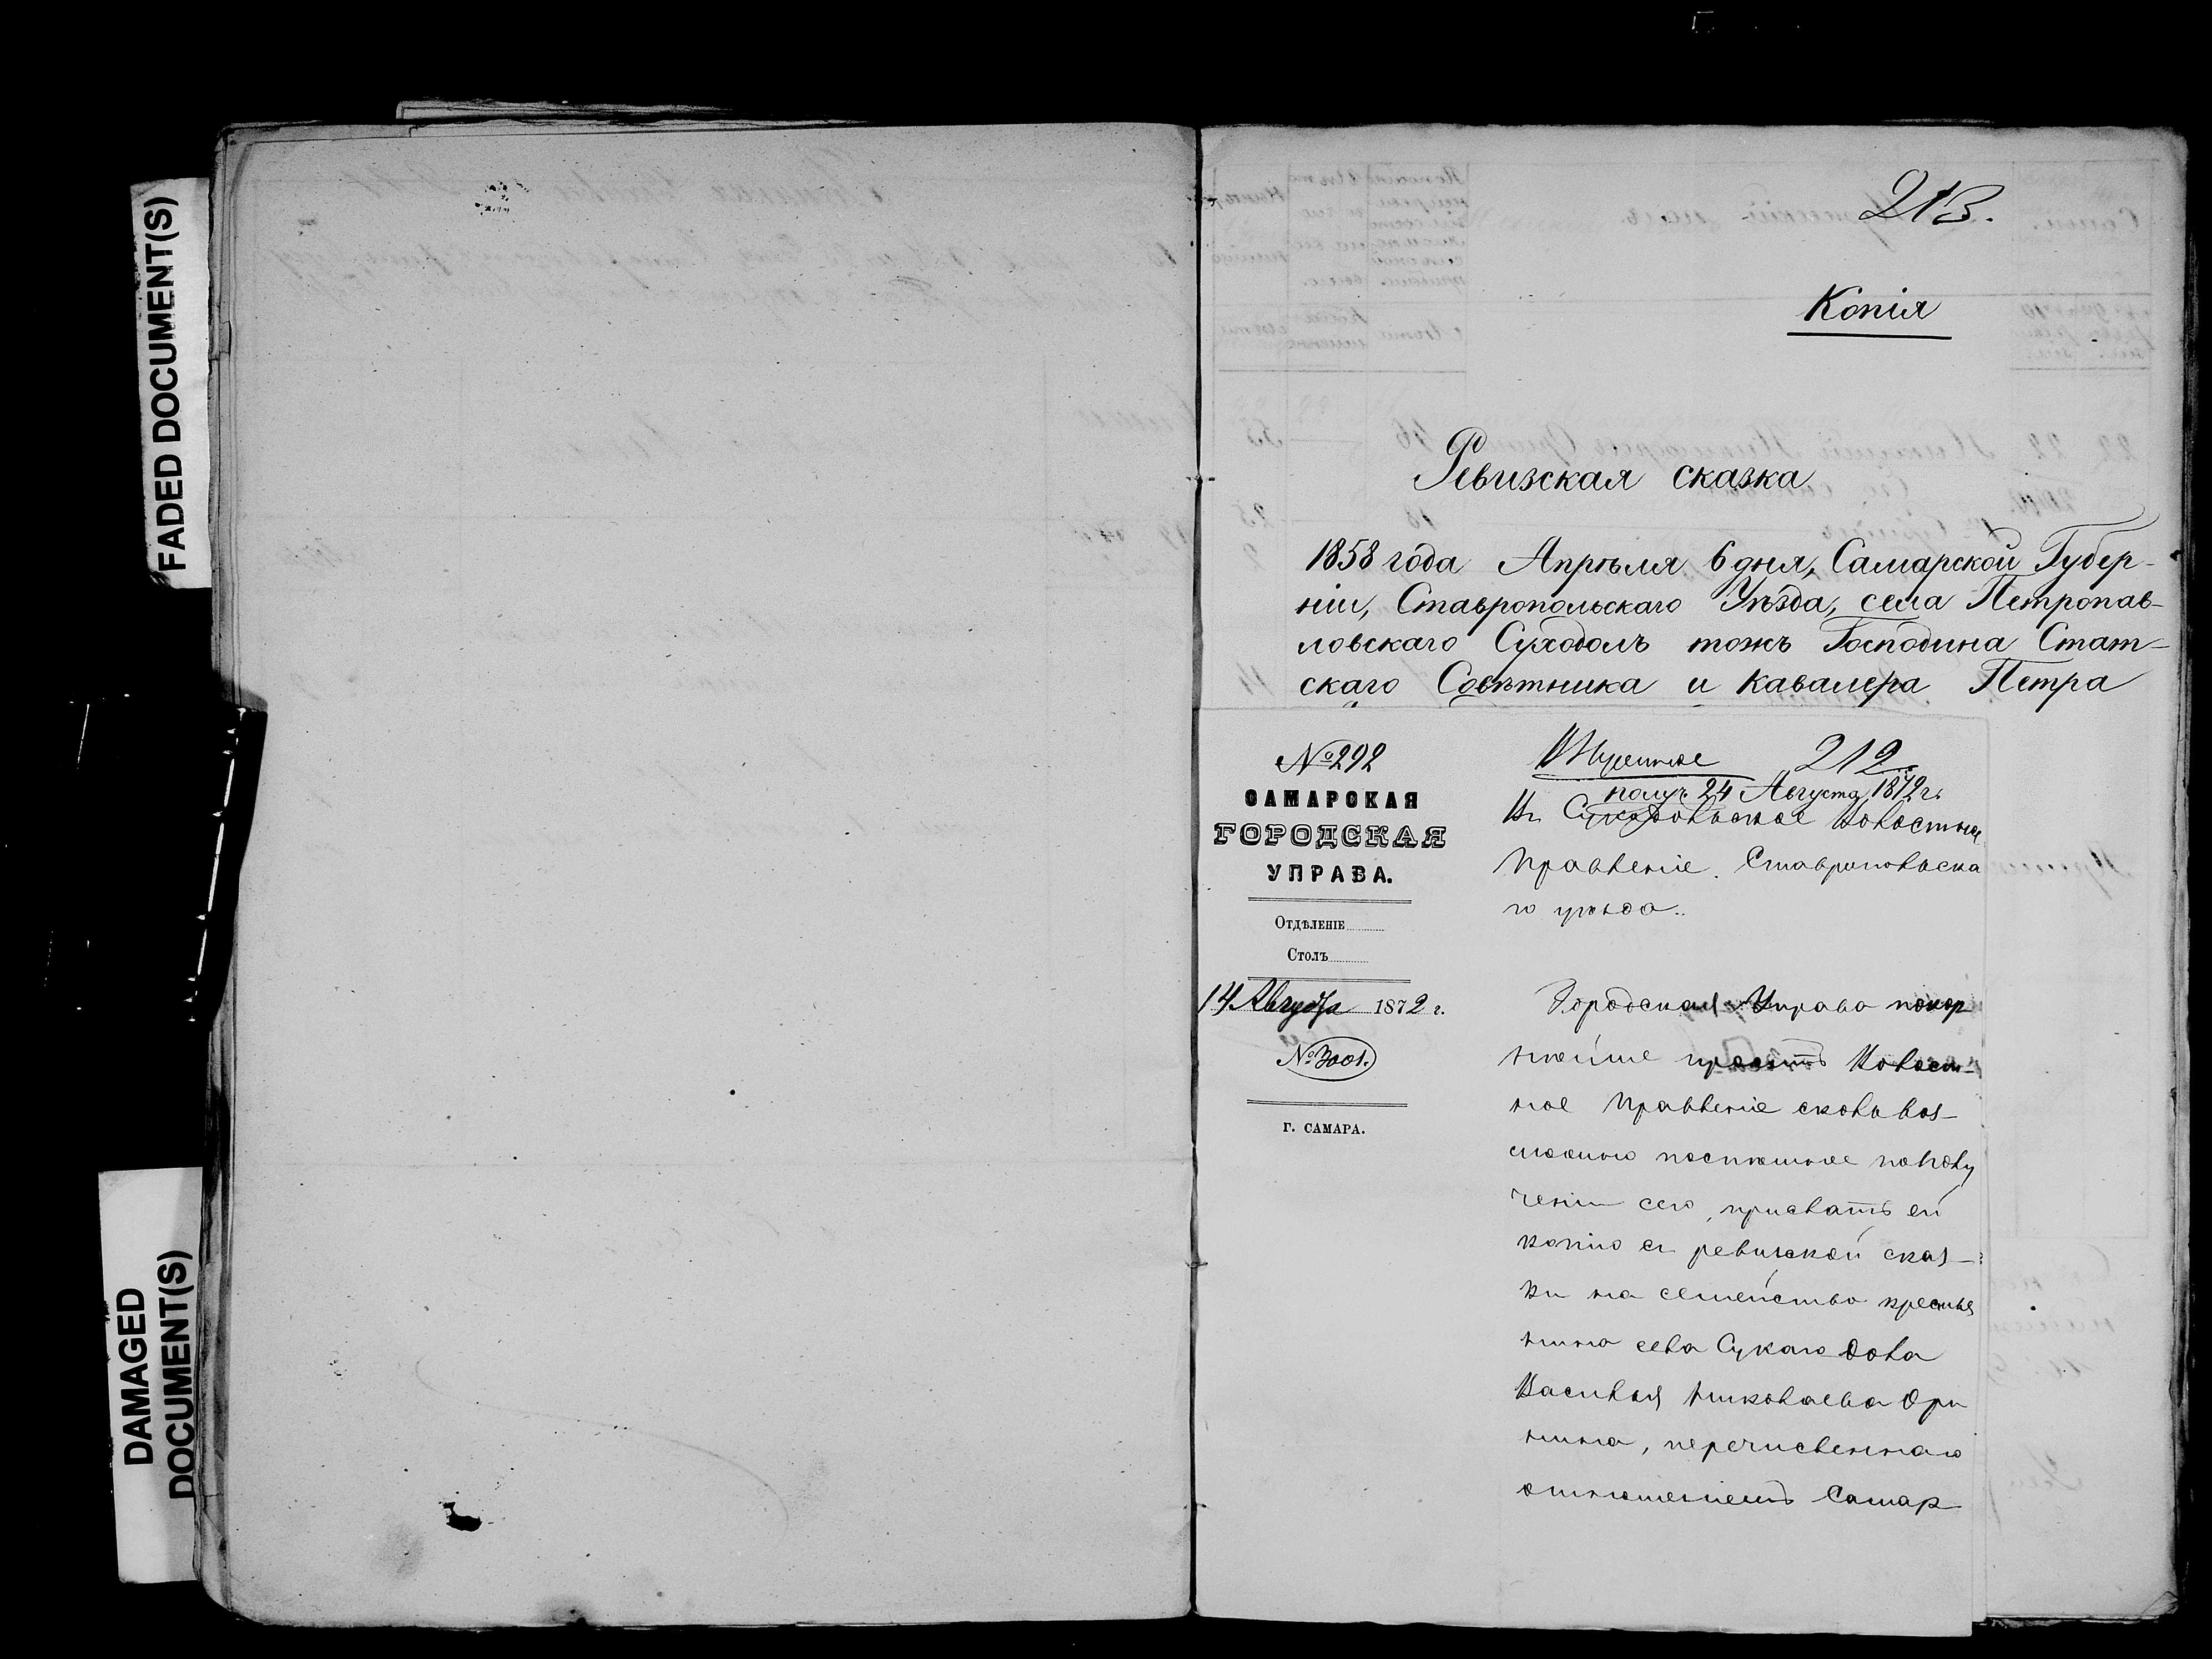 FADED DOCUMENT(S)
DAMAGED
DOCUMENT(S)
213.
Копія
Ревизская сказка
1858 года Апрѣля 6 дня, Самарской Губер-
ніи, Ставропольскаго Уѣзда, села Петропав-
ловскаго Суходолъ тожъ Господина Стат-
скаго Совѣтника и Кавалера Петра
№ 292
САМАРСКАЯ
ГОРОДСКАЯ
УПРАВА.
Отдѣленіе
Столъ
14 Августа 1872 г.
№ 3001.
г. САМАРА.
212
получ. 24 Августа 1872 г.
Въ Суходольское Волостное
Правленіе. Ставропольска
го уѣзда..
Городская Управа покор
нѣйше проситъ Волост-
ное Правленіе сколь воз-
можно поспѣшнѣе по полу
ченіи сего, прислать ей
копію съ ревизской сказ-
ки на семейство крестья
нина села Сухаго дола
Василья Николаева Ори
нина, перечисленнаго
отношеніемъ Самар